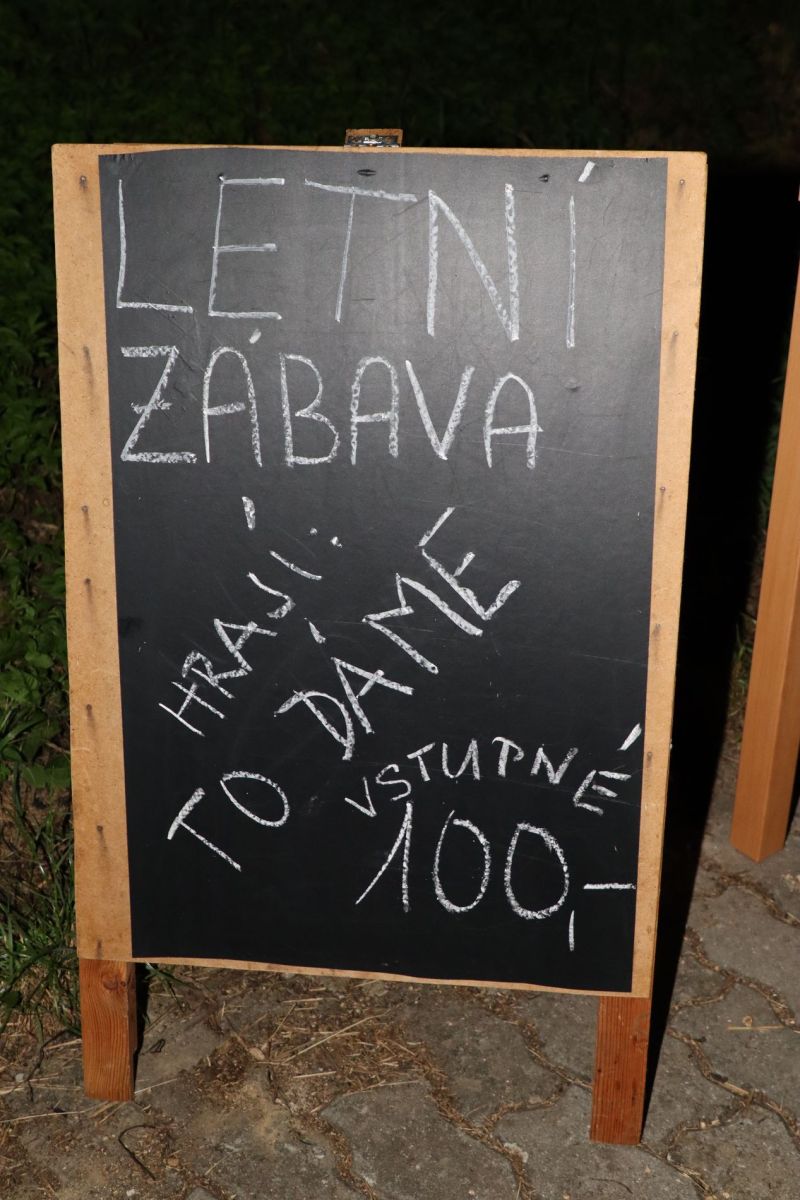 LETNÍ
ZÁBAVA
HRAJÍ:
TO DÁME
VSTUPNÉ
100,-